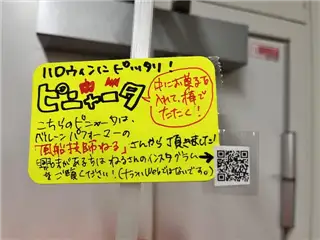 ハロウィンにピッタリ！
ピニャータ
中にお菓子を
入れて、棒で
たたく！
こちらのピニャータは、
バルーンパフォーマーの
「風船技師ねる」さんから頂きました！
興味がある方はねるさんのインスタグラム
をご覧ください！